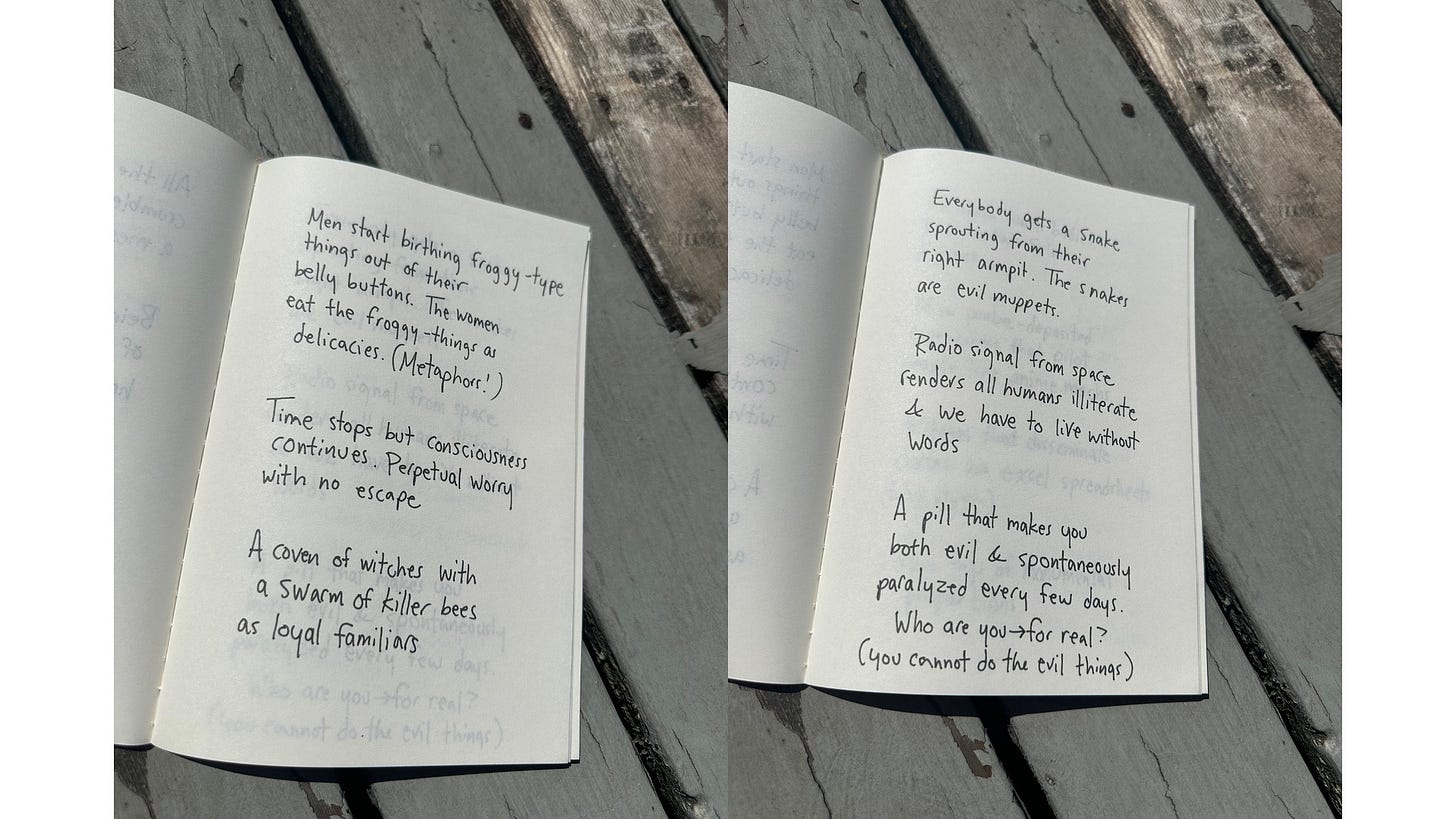 Men start birthing froggy-type
things out of their
belly buttons. The women
eat the froggy-things as
delicacies. (Metaphors!)
Time stops but consciousness
continues. Perpetual worry
with no escape
A coven of witches with
a swarm of killer bees
as loyal familiars
Everybody gets a snake
sprouting from their
right armpit. The snakes
are evil muppets.
Radio signal from space
renders all humans illiterate
& we have to live without
words
A pill that makes you
both evil & spontaneously
paralyzed every few days.
Who are you→for real?
(you cannot do the evil things)